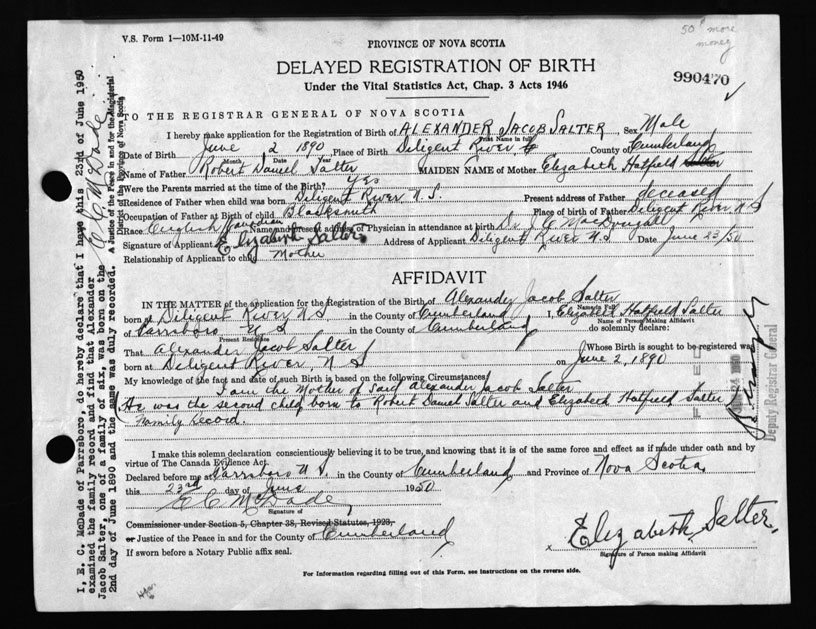 V.S. Form 1—10M-11-49
50¢ more
money
PROVINCE OF NOVA SCOTIA
DELAYED REGISTRATION OF BIRTH
Under the Vital Statistics Act, Chap. 3 Acts 1946
990470
TO THE REGISTRAR GENERAL OF NOVA SCOTIA
I hereby make application for the Registration of Birth of ALEXANDER JACOB SALTER, Sex Male
Print Name in full
Date of Birth June 2 1890 Place of Birth Diligent River, County of Cumberland
Month Date Year
Name of Father Robert Daniel Salter MAIDEN NAME of Mother Elizabeth Hatfield Salter
Were the Parents married at the time of the Birth? Yes
Residence of Father when child was born Diligent River N.S. Present address of Father deceased
Occupation of Father at Birth of child Blacksmith Place of birth of Father Diligent River N S
Race English Canadian Name and present address of Physician in attendance at birth Dr. J. A. MacDougall
Signature of Applicant Elizabeth Salter. Address of Applicant Diligent River N S Date June 23/50
Relationship of Applicant to child Mother
AFFIDAVIT
IN THE MATTER of the application for the Registration of the Birth of Alexander Jacob Salter
Name in Full
born at Diligent River N S in the County of Cumberland I, Elizabeth Hatfield Salter
Name of Person Making Affidavit
of Parrsboro N S in the County of Cumberland do solemnly declare:
Present Residence
That Alexander Jacob Salter Whose Birth is sought to be registered was
born at Diligent River, N S on June 2, 1890
My knowledge of the fact and date of such Birth is based on the following Circumstances:
I am the Mother of Said Alexander Jacob Salter
He was the second child born to Robert Daniel Salter and Elizabeth Hatfield Salter
Family Record.
I make this solemn declaration conscientiously believing it to be true, and knowing that it is of the same force and effect as if made under oath and by
virtue of The Canada Evidence Act.
Declared before me at Parrsboro N S. in the County of Cumberland and Province of Nova Scotia
this 23rd day of June 1950
E C McDade
Signature of
Commissioner under Section 5, Chapter 38, Revised Statutes, 1923,
or Justice of the Peace in and for the County of Cumberland
If sworn before a Notary Public affix seal.
x Elizabeth Salter.
Signature of Person making Affidavit
For Information regarding filling out of this Form, see instructions on the reverse side.
I, E. C. McDade of Parrsboro, do hereby declare that I have this 23rd of June 1950
examined the family record and find that Alexander
Jacob Salter, one of a family of six, was born on the
2nd day of June 1890 and the same was duly recorded.
E C McDade
A Justice of the Peace in and for the Municipal
District of the Province of Nova Scotia
Deputy Registrar General